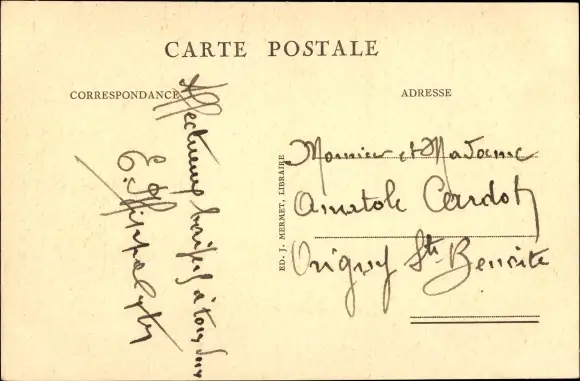 CARTE POSTALE
CORRESPONDANCE
ADRESSE
Affectueux baisers à tous
E. Hippolyte
ED. J. MERMET, LIBRAIRE
Monsieur et Madame
Anatole Cardot
Origny Ste Benoite